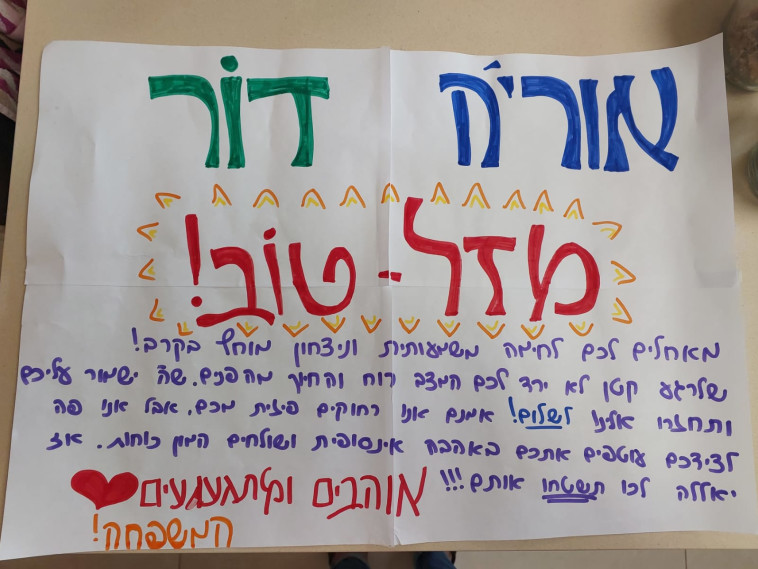 אורי׳ה דור
מזל-טוב!
מאחלים לכם לחימה משמעותית וניצחון מוחץ בקרב!
שלרגע קטן לא ירד לכם המצב רוח והחיוך מהפנים. שה׳ ישמור עליכם
ותחזרו אלינו לשלום! אמנם אנו רחוקים פיזית מכם, אבל אנו פה
לצידכם עוטפים אתכם באהבה אינסופית ושולחים המון כוחות. אז
יאללה לכו תשטחו אותם!!!
אוהבים ומתגעגעים
המשפחה!